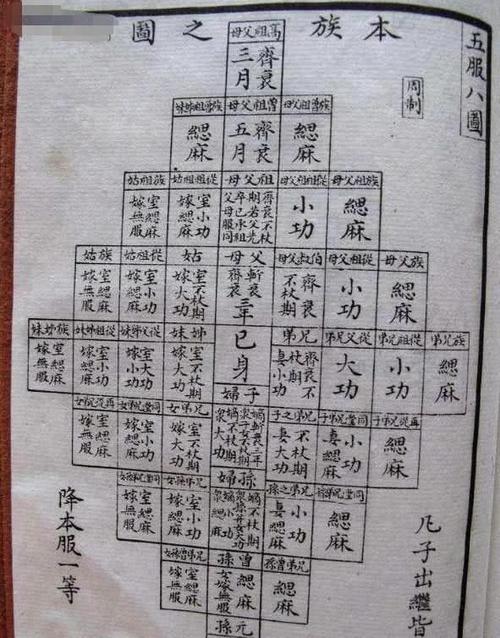 五服八圖
周制
本族之圖
高祖父母
齊衰三月
族曾祖父母
緦麻
曾祖父母
齊衰五月
緦麻
族祖父母
緦麻
從祖祖父母
小功
祖父母
齊衰不杖期
從祖祖姑
室小功
嫁緦麻
族祖姑
室緦麻
嫁無服
族父母
緦麻
從祖父母
小功
伯叔父母
齊衰不杖期
父母
斬衰三年
姑
室不杖期
嫁大功
從祖姑
室小功
嫁緦麻
族姑
室緦麻
嫁無服
族兄弟
緦麻
從祖兄弟
小功
從父兄弟
大功
兄弟
齊衰不杖期
妻小功
己身
姊妹
室不杖期
嫁大功
從父姊妹
室大功
嫁小功
從祖姊妹
室小功
嫁緦麻
族姊妹
室緦麻
嫁無服
緦麻
小功
妻緦麻
兄弟之子
不杖期
妻大功
子婦
兄弟女
室不杖期
嫁大功
室小功
嫁緦麻
室緦麻
嫁無服
緦麻
兄弟之孫
小功
妻緦麻
孫婦
室小功
嫁緦麻
室緦麻
嫁無服
緦麻
曾孫
緦麻
室緦麻
嫁無服
元孫
凡子出繼皆
降本服一等